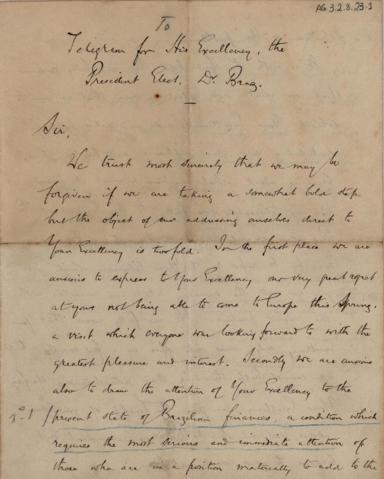 AG. 3.2.8.23-1
To
Telegram for His Excellency, the
President Elect. Dr. Braz.
Sir,
We trust most sincerely that we may be
forgiven if we are taking a somewhat bold step
but the object of our addressing ourselves direct to
Your Excellency is twofold. In the first place we are
anxious to express to Your Excellency our very great regret
at your not being able to come to Europe this Spring,
a visit which everyone was looking forward to with the
greatest pleasure and interest. Secondly we are anxious
also to draw the attention of Your Excellency to the
/ present state of Brazilian finances, a condition which
requires the most serious and immediate attention of
those who are in a position materially to add to the